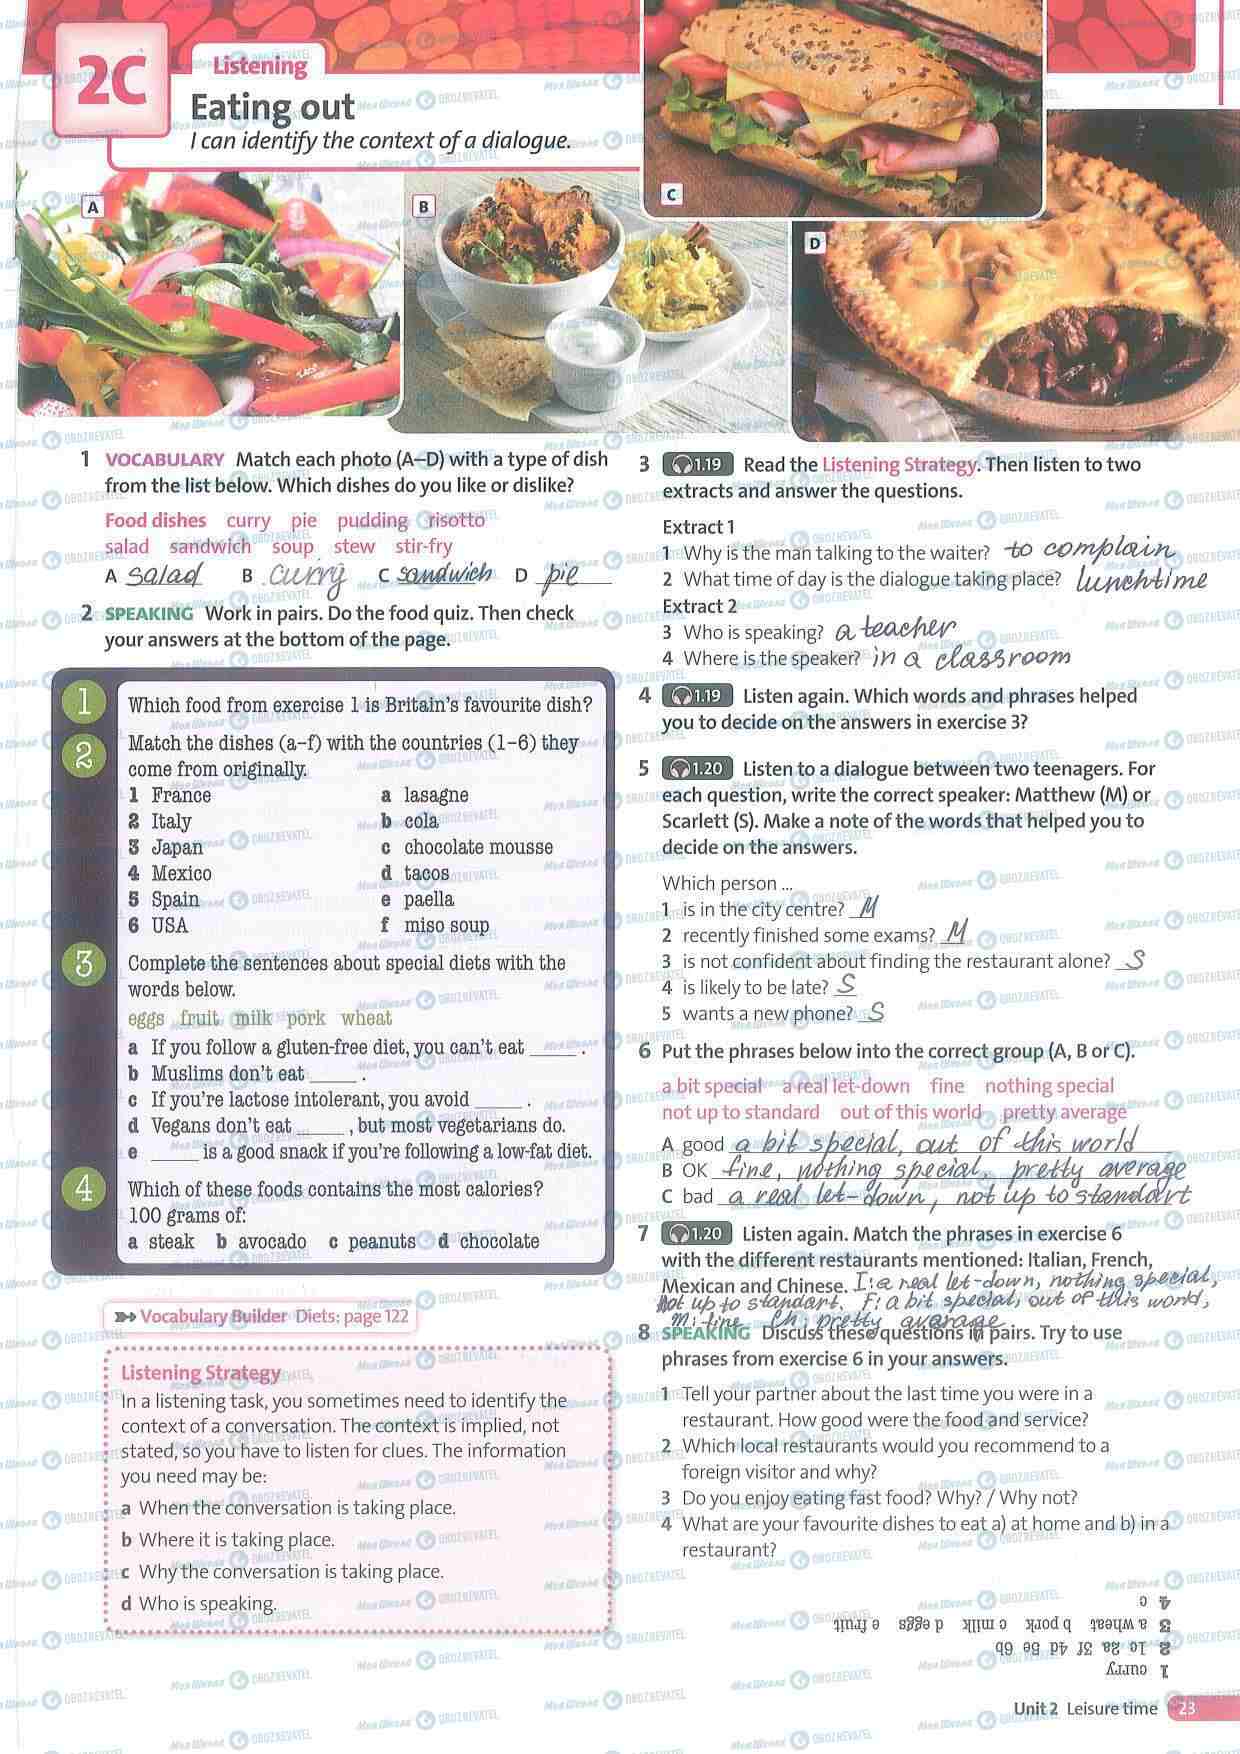 2C
Listening
Eating out
I can identify the context of a dialogue.
A
B
C
D
1 VOCABULARY Match each photo (A–D) with a type of dish
from the list below. Which dishes do you like or dislike?
Food dishes curry pie pudding risotto
salad sandwich soup stew stir-fry
A salad B curry C sandwich D pie
2 SPEAKING Work in pairs. Do the food quiz. Then check
your answers at the bottom of the page.
1 Which food from exercise 1 is Britain's favourite dish?
2 Match the dishes (a–f) with the countries (1–6) they
come from originally.
1 France a lasagne
2 Italy b cola
3 Japan c chocolate mousse
4 Mexico d tacos
5 Spain e paella
6 USA f miso soup
3 Complete the sentences about special diets with the
words below.
eggs fruit milk pork wheat
a If you follow a gluten-free diet, you can't eat _____ .
b Muslims don't eat _____ .
c If you're lactose intolerant, you avoid _____ .
d Vegans don't eat _____ , but most vegetarians do.
e _____ is a good snack if you're following a low-fat diet.
4 Which of these foods contains the most calories?
100 grams of:
a steak b avocado c peanuts d chocolate
Vocabulary Builder Diets: page 122
Listening Strategy
In a listening task, you sometimes need to identify the
context of a conversation. The context is implied, not
stated, so you have to listen for clues. The information
you need may be:
a When the conversation is taking place.
b Where it is taking place.
c Why the conversation is taking place.
d Who is speaking.
3 1.19 Read the Listening Strategy. Then listen to two
extracts and answer the questions.
Extract 1
1 Why is the man talking to the waiter? to complain
2 What time of day is the dialogue taking place? lunchtime
Extract 2
3 Who is speaking? a teacher
4 Where is the speaker? in a classroom
4 1.19 Listen again. Which words and phrases helped
you to decide on the answers in exercise 3?
5 1.20 Listen to a dialogue between two teenagers. For
each question, write the correct speaker: Matthew (M) or
Scarlett (S). Make a note of the words that helped you to
decide on the answers.
Which person ...
1 is in the city centre? M
2 recently finished some exams? M
3 is not confident about finding the restaurant alone? S
4 is likely to be late? S
5 wants a new phone? S
6 Put the phrases below into the correct group (A, B or C).
a bit special a real let-down fine nothing special
not up to standard out of this world pretty average
A good a bit special, out of this world
B OK fine, nothing special, pretty average
C bad a real let-down, not up to standart
7 1.20 Listen again. Match the phrases in exercise 6
with the different restaurants mentioned: Italian, French,
Mexican and Chinese. I: a real let-down, nothing special,
not up to standart. F: a bit special, out of this world,
M: fine Ch: pretty average
8 SPEAKING Discuss these questions in pairs. Try to use
phrases from exercise 6 in your answers.
1 Tell your partner about the last time you were in a
restaurant. How good were the food and service?
2 Which local restaurants would you recommend to a
foreign visitor and why?
3 Do you enjoy eating fast food? Why? / Why not?
4 What are your favourite dishes to eat a) at home and b) in a
restaurant?
1 curry
2 1c 2a 3f 4d 5e 6b
3 a wheat b pork c milk d eggs e fruit
4 c
Unit 2 Leisure time 23